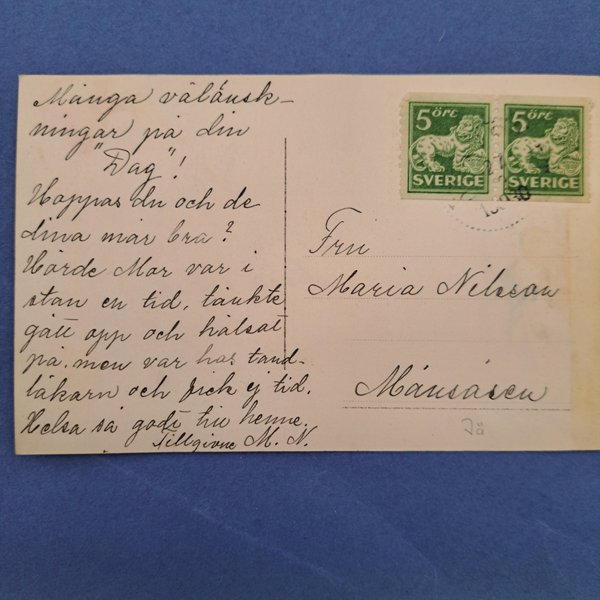 Många välönsk-
ningar på din
"Dag"!
Hoppas du och de
dina mår bra?
Hörde Mor var i
stan en tid, tänkte
gått opp och hälsat
på, men var hos tand-
läkarn och fick ej tid.
Helsa så godt till henne.
Tillgivne M. N.
5 ÖRE
SVERIGE
5 ÖRE
SVERIGE
Fru
Maria Nilsson
Månsåsen
Jä